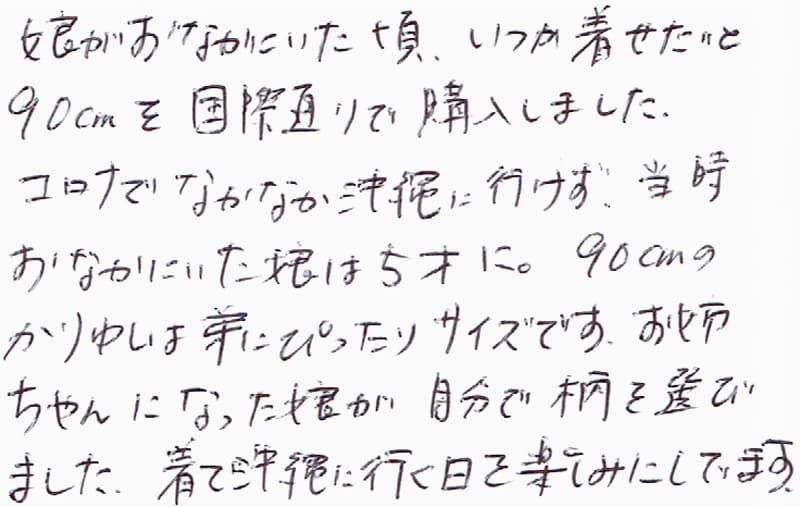 娘がおなかにいた頃、いつか着せたいと
90cmを国際通りで購入しました。
コロナでなかなか沖縄に行けず、当時
おなかにいた娘は5才に。90cmの
かりゆしは弟にぴったりサイズです。お姉
ちゃんになった娘が自分で柄を選び
ました。着て沖縄に行く日を楽しみにしています。